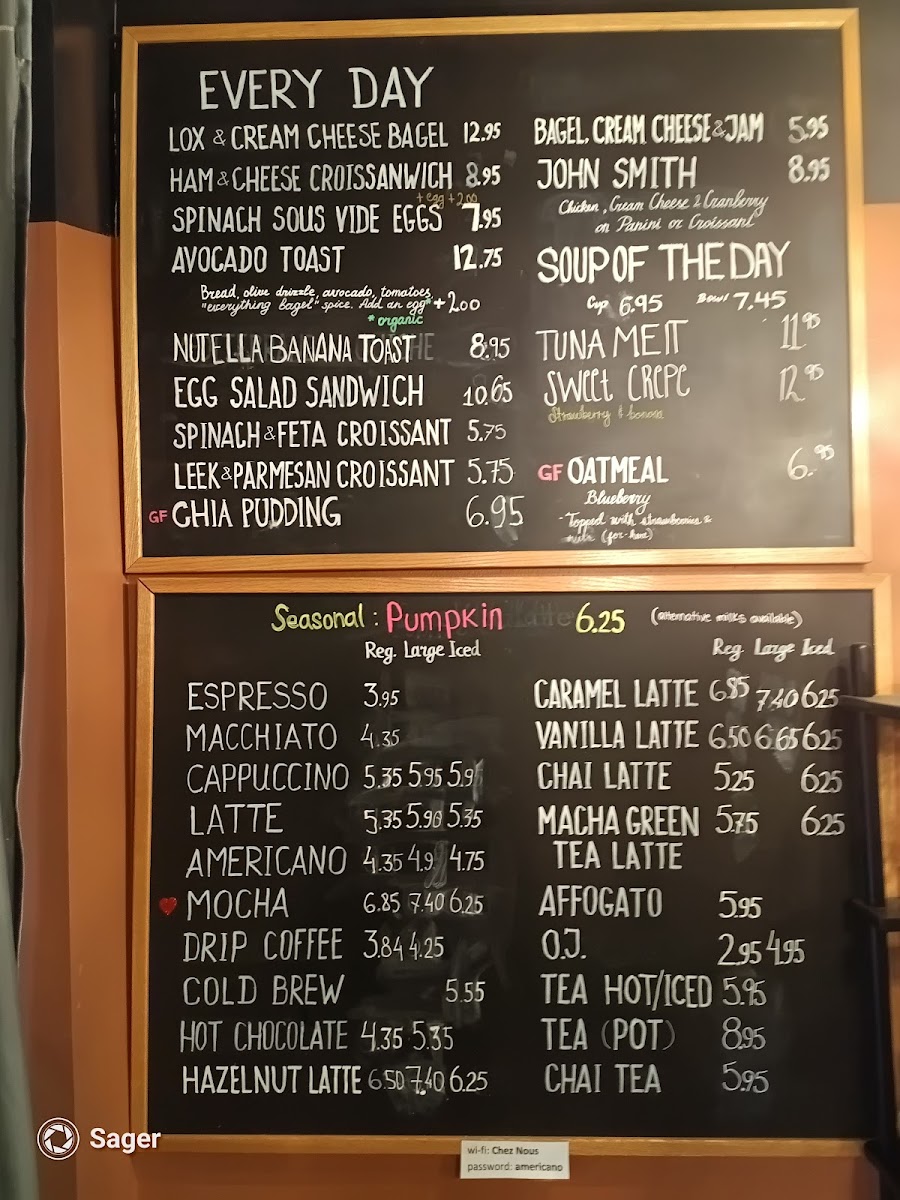 EVERY DAY
LOX & CREAM CHEESE BAGEL 12.95
HAM & CHEESE CROISSANWICH 8.95
+ egg +2.00
SPINACH SOUS VIDE EGGS 7.95
AVOCADO TOAST 12.75
Bread, olive drizzle, avocado, tomatoes,
"everything bagel" spice. Add an egg* +2.00
* organic
NUTELLA BANANA TOAST 8.95
EGG SALAD SANDWICH 10.65
SPINACH & FETA CROISSANT 5.75
LEEK & PARMESAN CROISSANT 5.75
GF CHIA PUDDING 6.95
BAGEL, CREAM CHEESE & JAM 5.95
JOHN SMITH 8.95
Chicken, Cream Cheese & Cranberry
on Panini or Croissant
SOUP OF THE DAY
Cup 6.95 Bowl 7.45
TUNA MELT 11.95
SWEET CREPE 12.95
Strawberry & banana
GF OATMEAL 6.95
Blueberry
- Topped with strawberries &
(for-here)
Seasonal : Pumpkin 6.25 (alternative milks available)
Reg. Large Iced
ESPRESSO 3.95
MACCHIATO 4.35
CAPPUCCINO 5.35 5.95 5.9
LATTE 5.35 5.90 5.35
AMERICANO 4.35 4.9 4.75
MOCHA 6.85 7.40 6.25
DRIP COFFEE 3.84 4.25
COLD BREW 5.55
HOT CHOCOLATE 4.35 5.35
HAZELNUT LATTE 6.50 7.40 6.25
Reg. Large Iced
CARAMEL LATTE 6.85 7.40 6.25
VANILLA LATTE 6.50 6.65 6.25
CHAI LATTE 5.25 6.25
MACHA GREEN 5.75 6.25
TEA LATTE
AFFOGATO 5.95
O.J. 2.95 4.95
TEA HOT/ICED 5.95
TEA (POT) 8.95
CHAI TEA 5.95
wi-fi: Chez Nous
password: americano
Sager